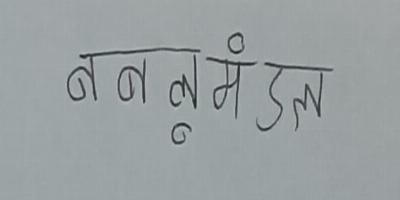 बबलू मंडल